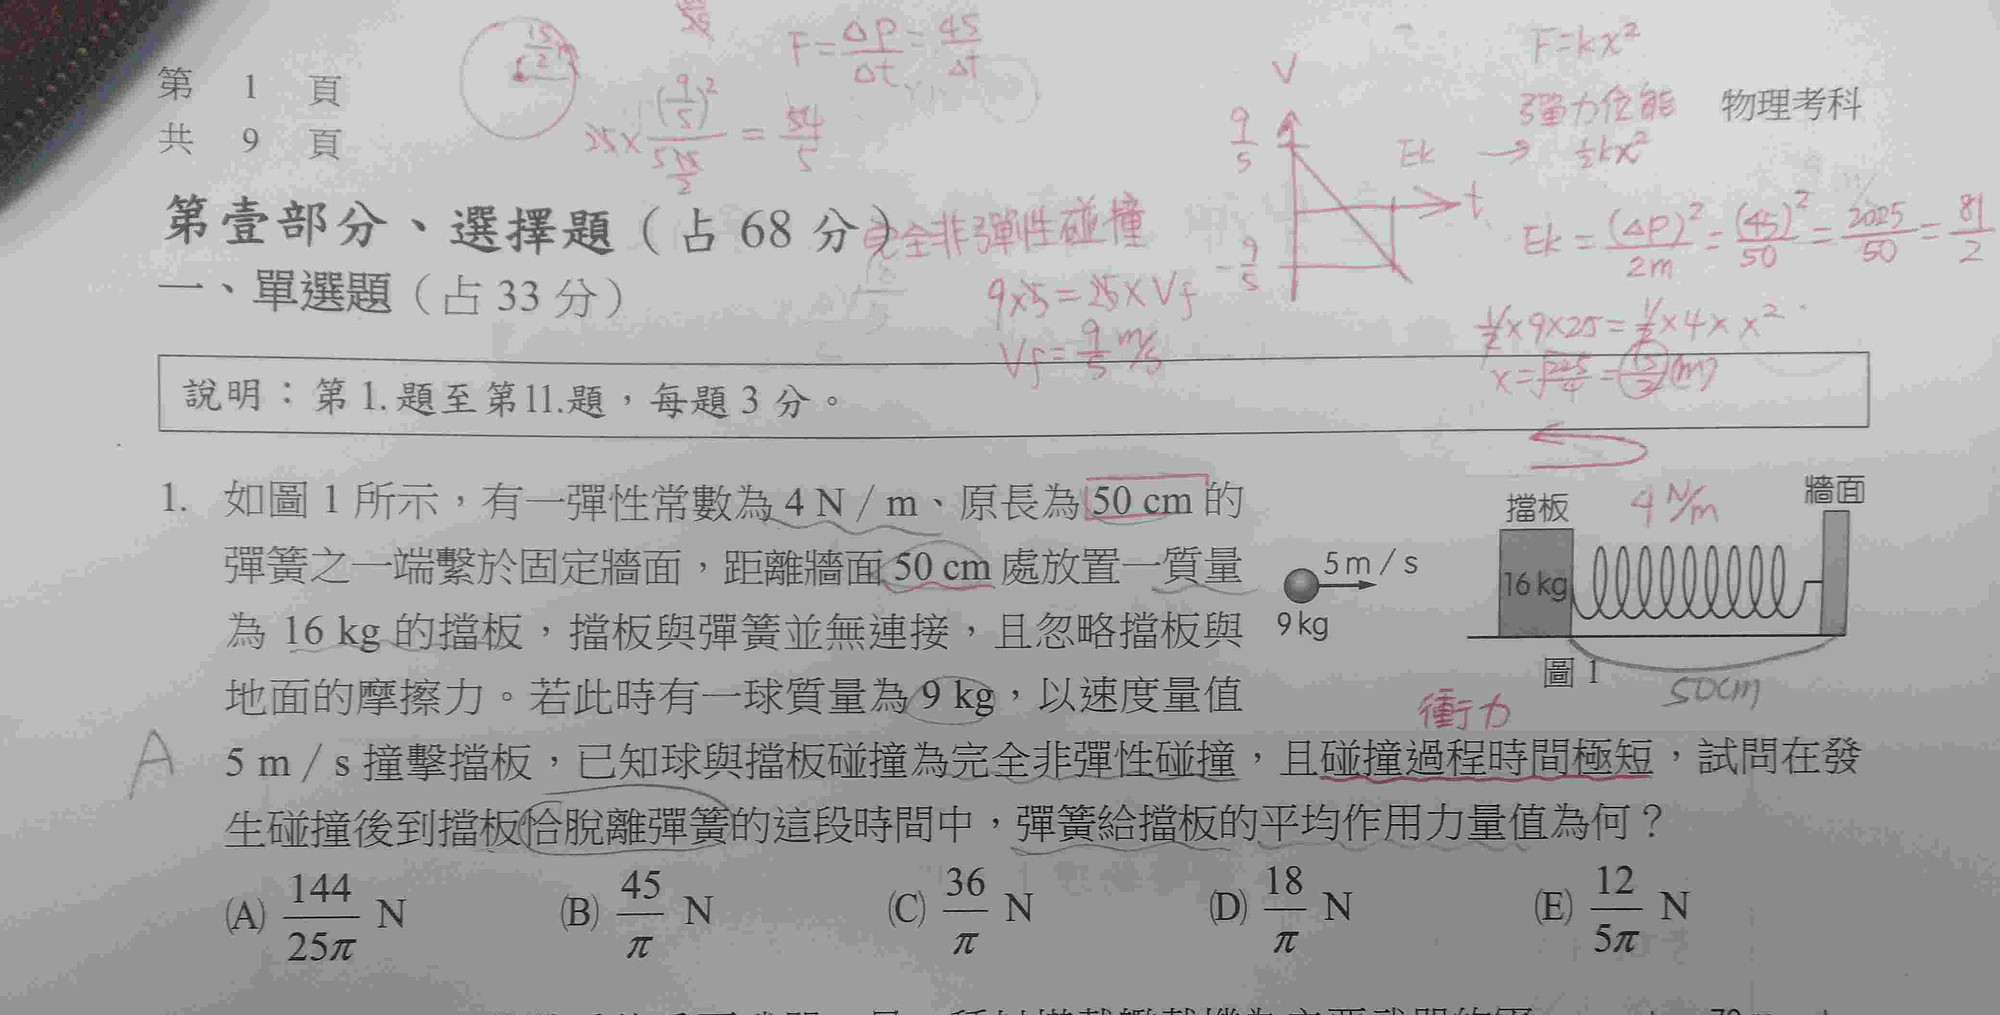 15/2 m
F = Δp/Δt = 45/Δt
V
F=kx²
第 1 頁
25× (9/5)² / 15/2 = 54/5
9/5
Ek → 彈力位能
½kx²
物理考科
共 9 頁
t
第壹部分、選擇題（占 68 分）
完全非彈性碰撞
-9/5
Ek = (Δp)²/2m = (45)²/50 = 2025/50 = 81/2
一、單選題（占 33 分）
9×5=25×Vf
Vf=9/5 m/s
½×9×25=½×4×x²
x=√225/4=15/2(m)
說明：第 1.題至第11.題，每題 3 分。
1. 如圖 1 所示，有一彈性常數為 4 N / m、原長為 50 cm 的
彈簧之一端繫於固定牆面，距離牆面 50 cm 處放置一質量
為 16 kg 的擋板，擋板與彈簧並無連接，且忽略擋板與
地面的摩擦力。若此時有一球質量為 9 kg，以速度量值
5 m / s 撞擊擋板，已知球與擋板碰撞為完全非彈性碰撞，且碰撞過程時間極短，試問在發
生碰撞後到擋板恰脫離彈簧的這段時間中，彈簧給擋板的平均作用力量值為何？
A
擋板
4 N/m
牆面
5 m / s
16 kg
9 kg
圖 1
50cm
衝力
(A) 144/25π N
(B) 45/π N
(C) 36/π N
(D) 18/π N
(E) 12/5π N